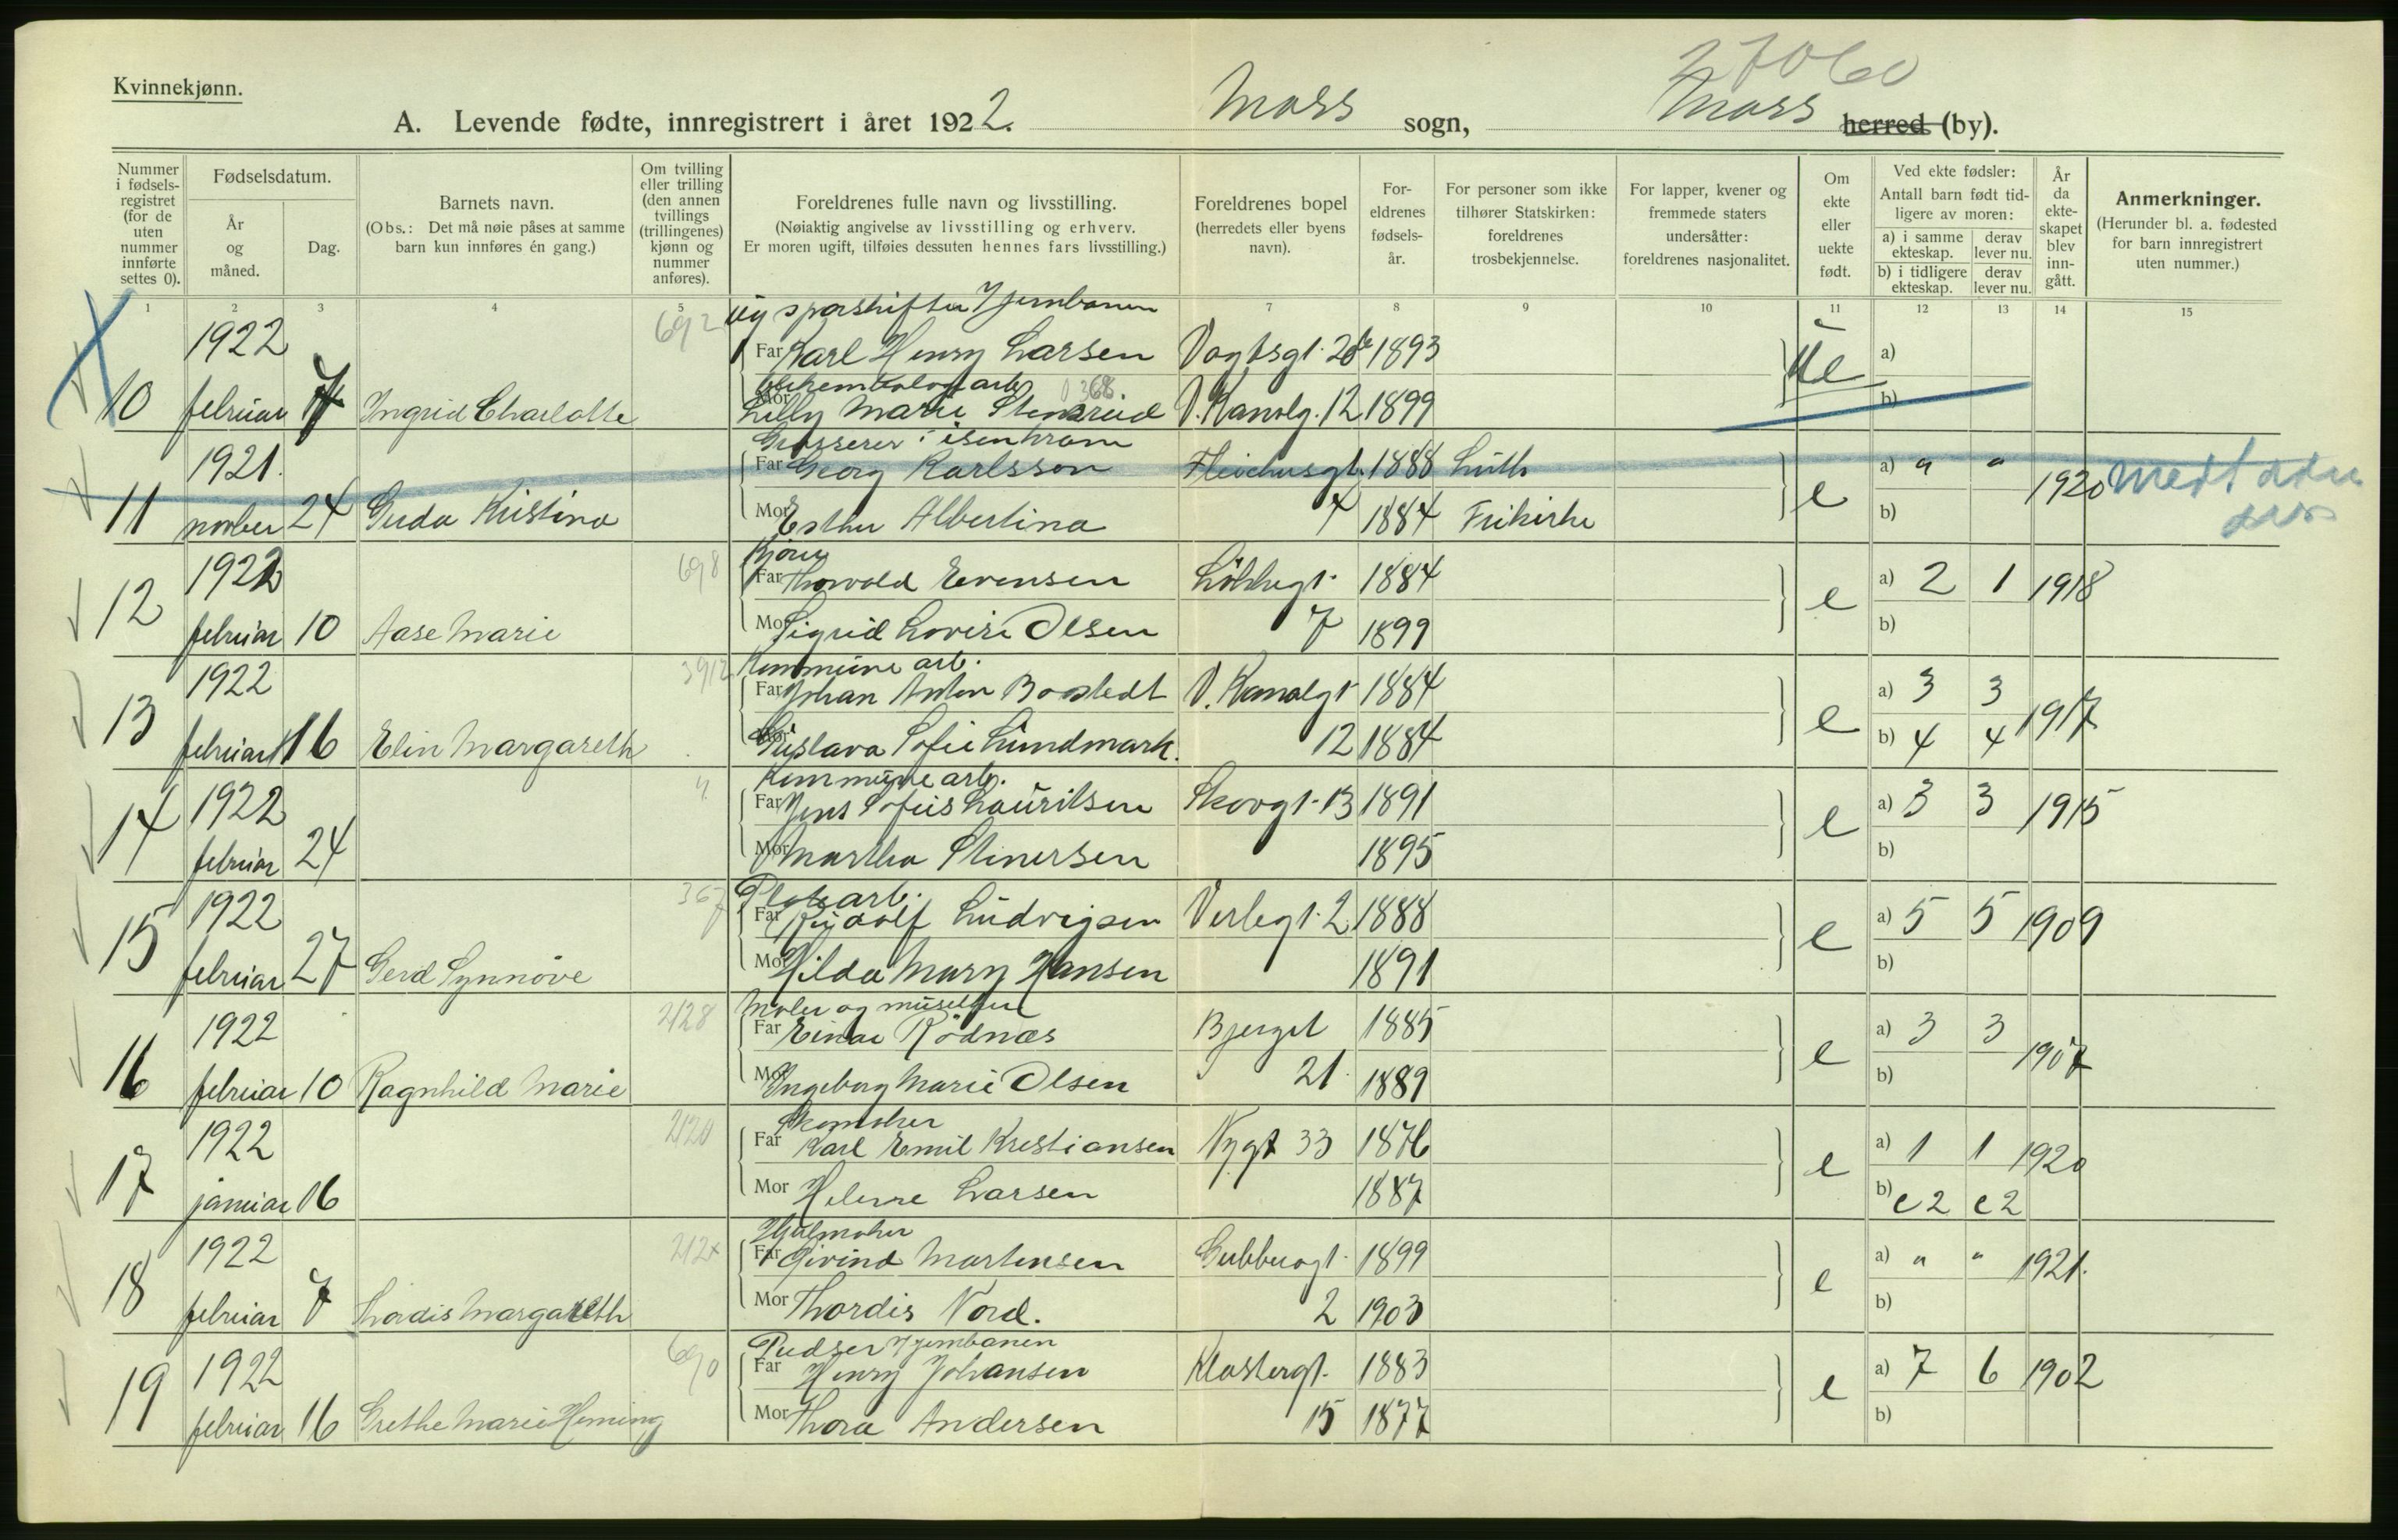 Kvinnekjønn.
27060
A. Levende fødte, innregistrert i året 1922. Moss sogn, Moss herred (by).
Nummer i fødselsregistret (for de uten nummer innførte settes 0).
Fødselsdatum.
År og måned.
Dag.
Barnets navn.
(Obs.: Det må nøie påses at samme barn kun innføres én gang.)
Om tvilling eller trilling (den annen tvillings (trillingenes) kjønn og nummer anføres).
Foreldrenes fulle navn og livsstilling.
(Nøiaktig angivelse av livsstilling og erhverv. Er moren ugift, tilføies dessuten hennes fars livsstilling.)
Foreldrenes bopel (herredets eller byens navn).
Foreldrenes fødselsår.
For personer som ikke tilhører Statskirken: foreldrenes trosbekjennelse.
For lapper, kvener og fremmede staters undersåtter: foreldrenes nasjonalitet.
Om ekte eller uekte født.
Ved ekte fødsler: Antall barn født tidligere av moren:
a) i samme ekteskap. derav lever nu.
b) i tidligere ekteskap. derav lever nu.
År da ekteskapet blev inngått.
Anmerkninger.
(Herunder bl. a. fødested for barn innregistrert uten nummer.)
1 2 3 4 5 7 8 9 10 11 12 13 14 15
692 ug sporskifter Jernbanen
1922 Far Karl Henry Larsen Vogtsgt. 1893 ue a)
10 februar 7 Ingrid Charlotte 368
Mor Lilly Marie Stensrud V. Kanalg. 12 1899 b)
Grosserer i isenkram
1921. Far Georg Karlsson 1888 Luth a) " " 1920
11 novber 24 Gerda Kristina Mor Esther Albertina 4 1884 Frikirke e b)
698 Kjører
1922 Far Thorvald Evensen 1884 a) 2 1 1918
12 februar 10 Aase Marie Mor Sigrid Lovise Olsen 7 1899 e b)
3912 Kommune arb.
1922 Far Johan Anton Borstedt V. Kanalgt 1884 a) 3 3 1917
13 februar 16 Elin Margareth Mor Gustava Sofie Lundmark. 12 1884 e b) 4 4
" Kommune arb.
1922 Far Jens Sofus Lauritsen Skovgt. 13 1891 a) 3 3 1915
14 februar 24 Mor Martha Stenersen 1895 e b)
367
1922 Far Rudolf Ludvigsen Verlegt. 2 1888 a) 5 5 1909
15 februar 27 Gerd Synnöve Mor Hilda Mary Hansen 1891 e b)
2128 Maler og
1922 Far Einar Rödnæs Bjerget 1885 a) 3 3 1907
16 februar 10 Ragnhild Marie Mor Ingeborg Marie Olsen 21 1889 e b)
2120 Skomaker
1922 Far Karl Emil Kristiansen Nygt 33 1876 a) 1 1 1920
17 januar 16 Mor Helene Larsen 1887 e b) e 2 e 2
212x Hjulmaker
1922 Far Eivind Martinsen Gubberogt. 1899 a) " " 1921.
18 februar 7 Thordis Margareth Mor Thordis Nord. 2 1903 e b)
690 Pudser Jernbanen
1922 Far Henry Johansen Klostergt. 1883 a) 7 6 1902
19 februar 16 Grethe Marie Heming Mor Thora Andersen 15 1877 e b)